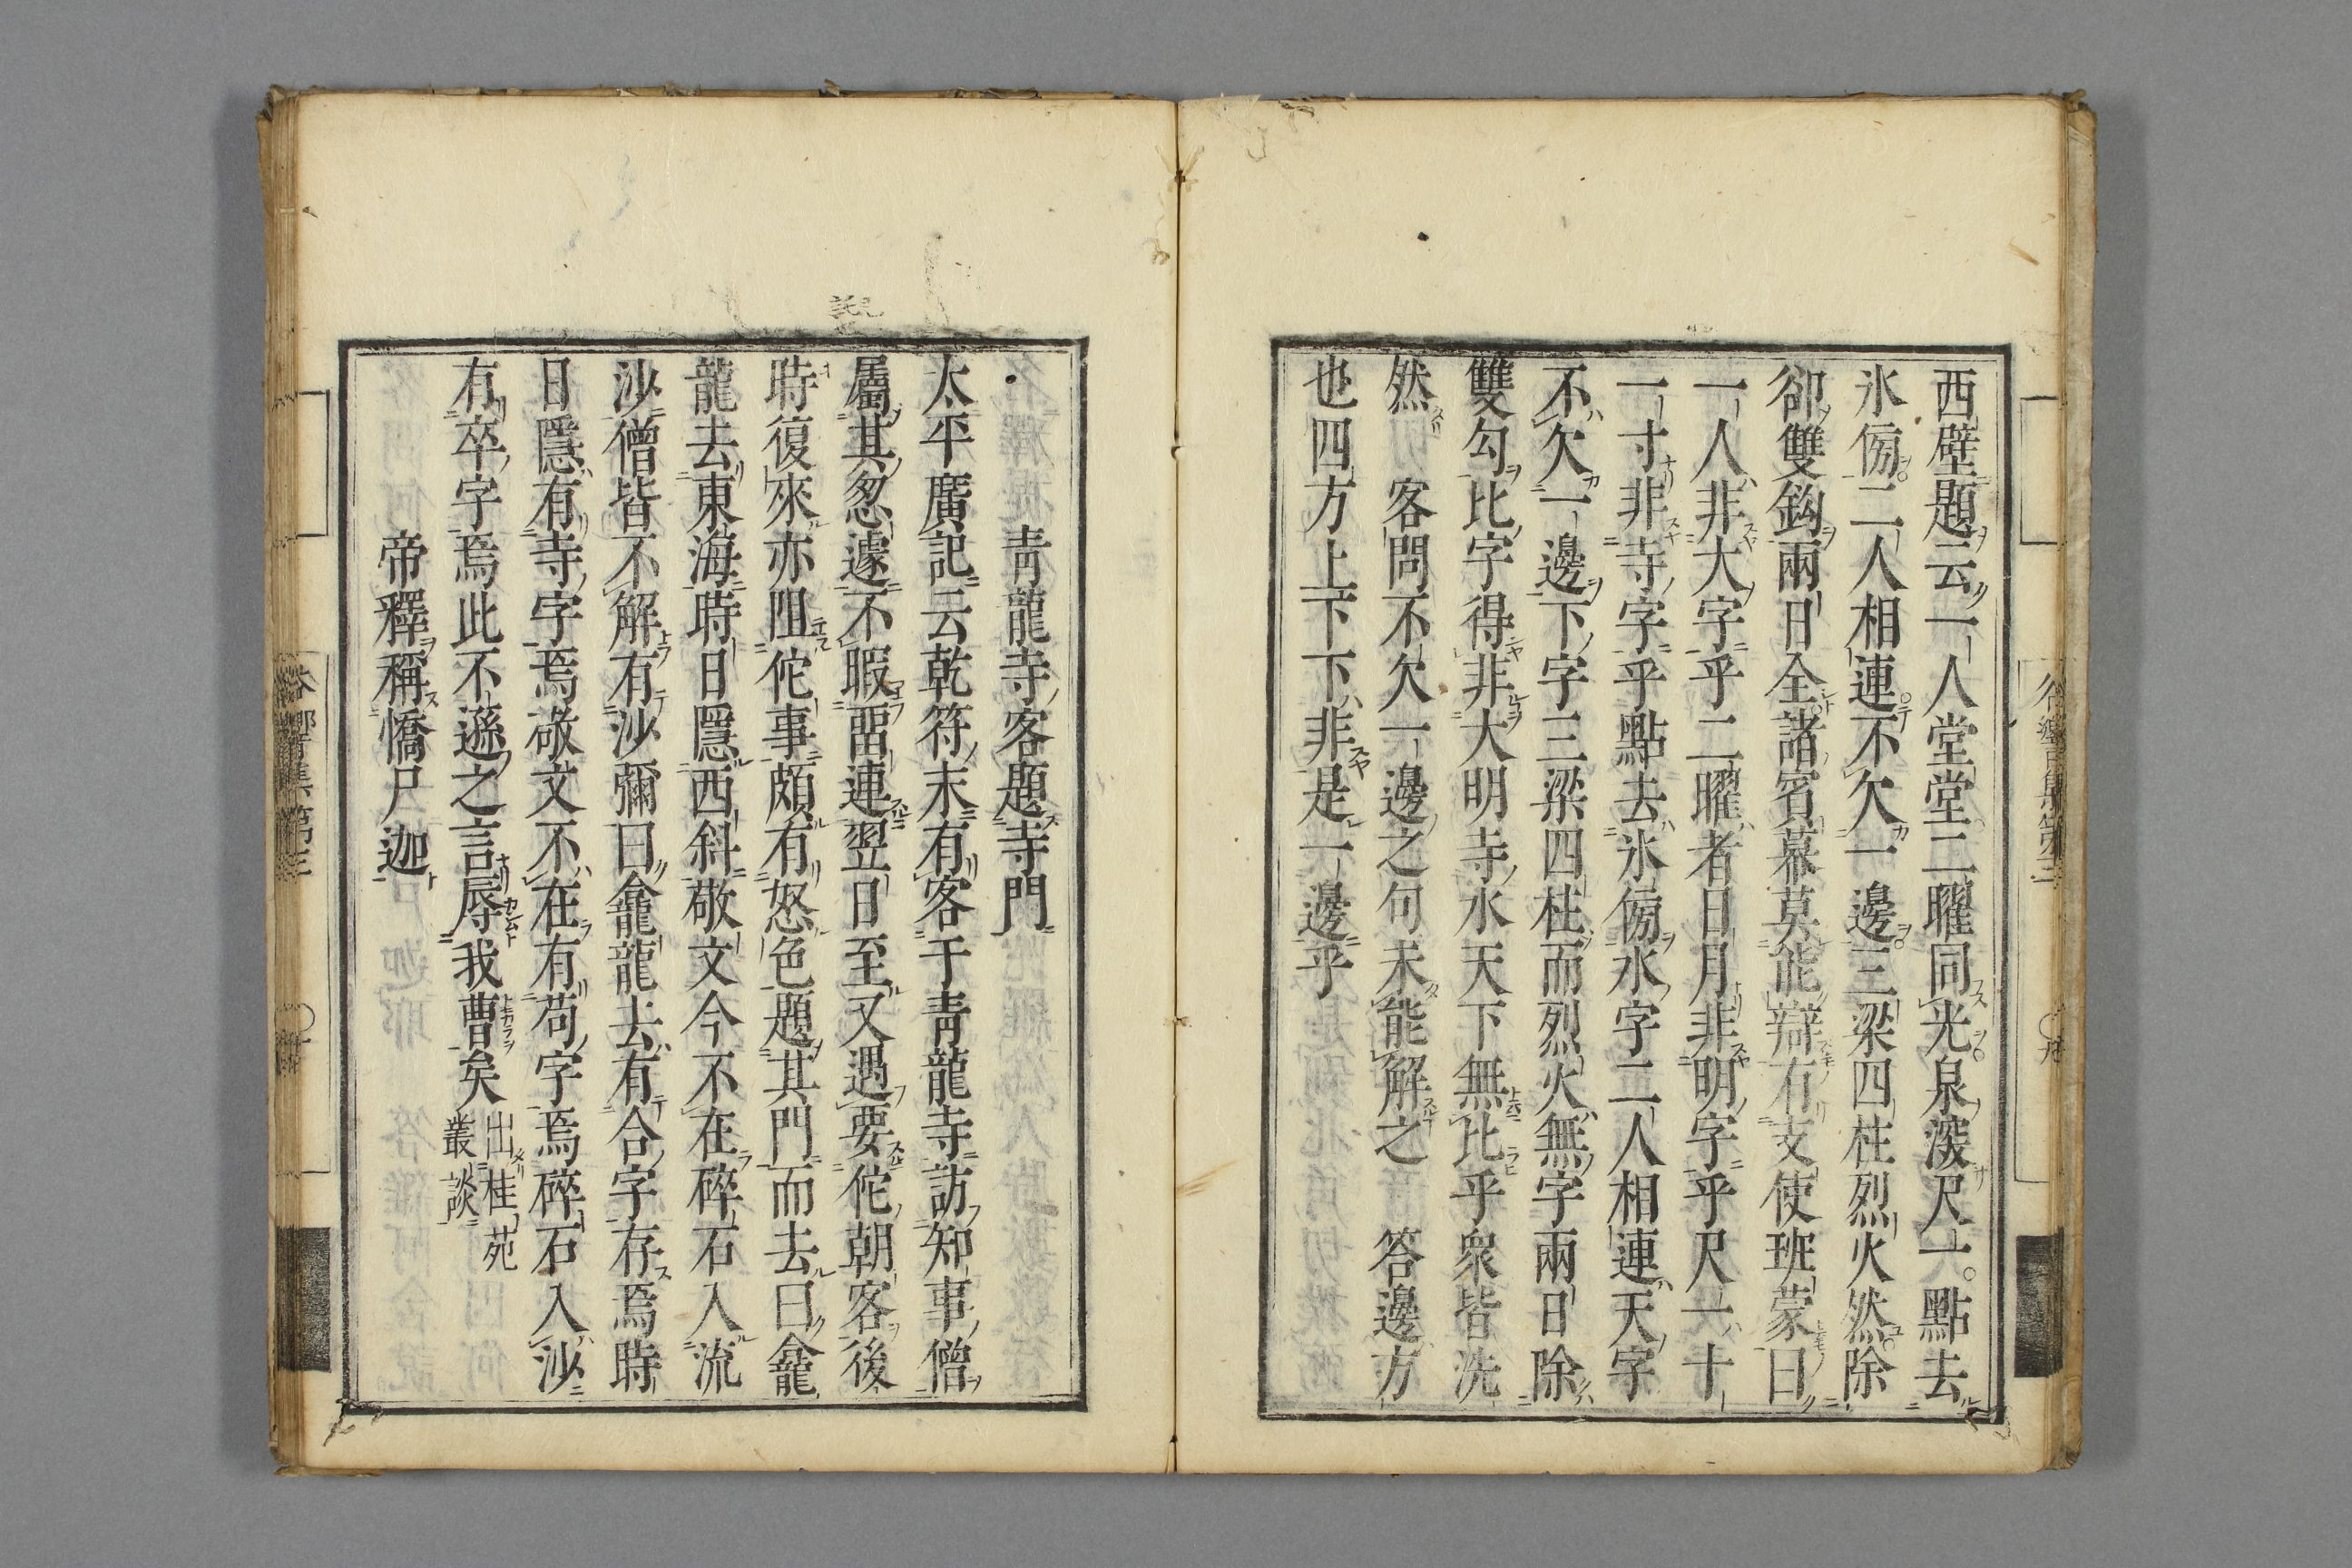 西壁題云一人堂堂二曜同光泉深尺一點去
氷傍二人相連不欠一邊三梁四柱烈火然除
卻雙鈎兩日全諸賓幕莫能辯有支使班蒙曰
一人非大字乎二曜者日月非明字乎尺一十
一寸非寺字乎點去氷傍水字二人相連天字
不欠一邊下字三梁四柱而烈火無字兩日除
雙勾比字得非大明寺水天下無比乎衆皆洗
然　客問不欠一邊之句未能解之　答邊方
也四方上下下非是一邊乎
青龍寺客題寺門
太平廣記云乾符末有客于青龍寺訪知事僧
屬其怱遽不暇留連翌日至又遇要佗朝客後
時復來亦阻佗事頗有怒色題其門而去曰龕
龍去東海時日隱西斜敬文今不在碎石入流
沙僧皆不解有沙彌曰龕龍去有合字存焉時
日隱有寺字焉敬文不在有苟字焉碎石入沙
有卒字焉此不遜之言辱我曹矣出桂苑
叢談
帝釋稱憍尸迦
谷響集第三